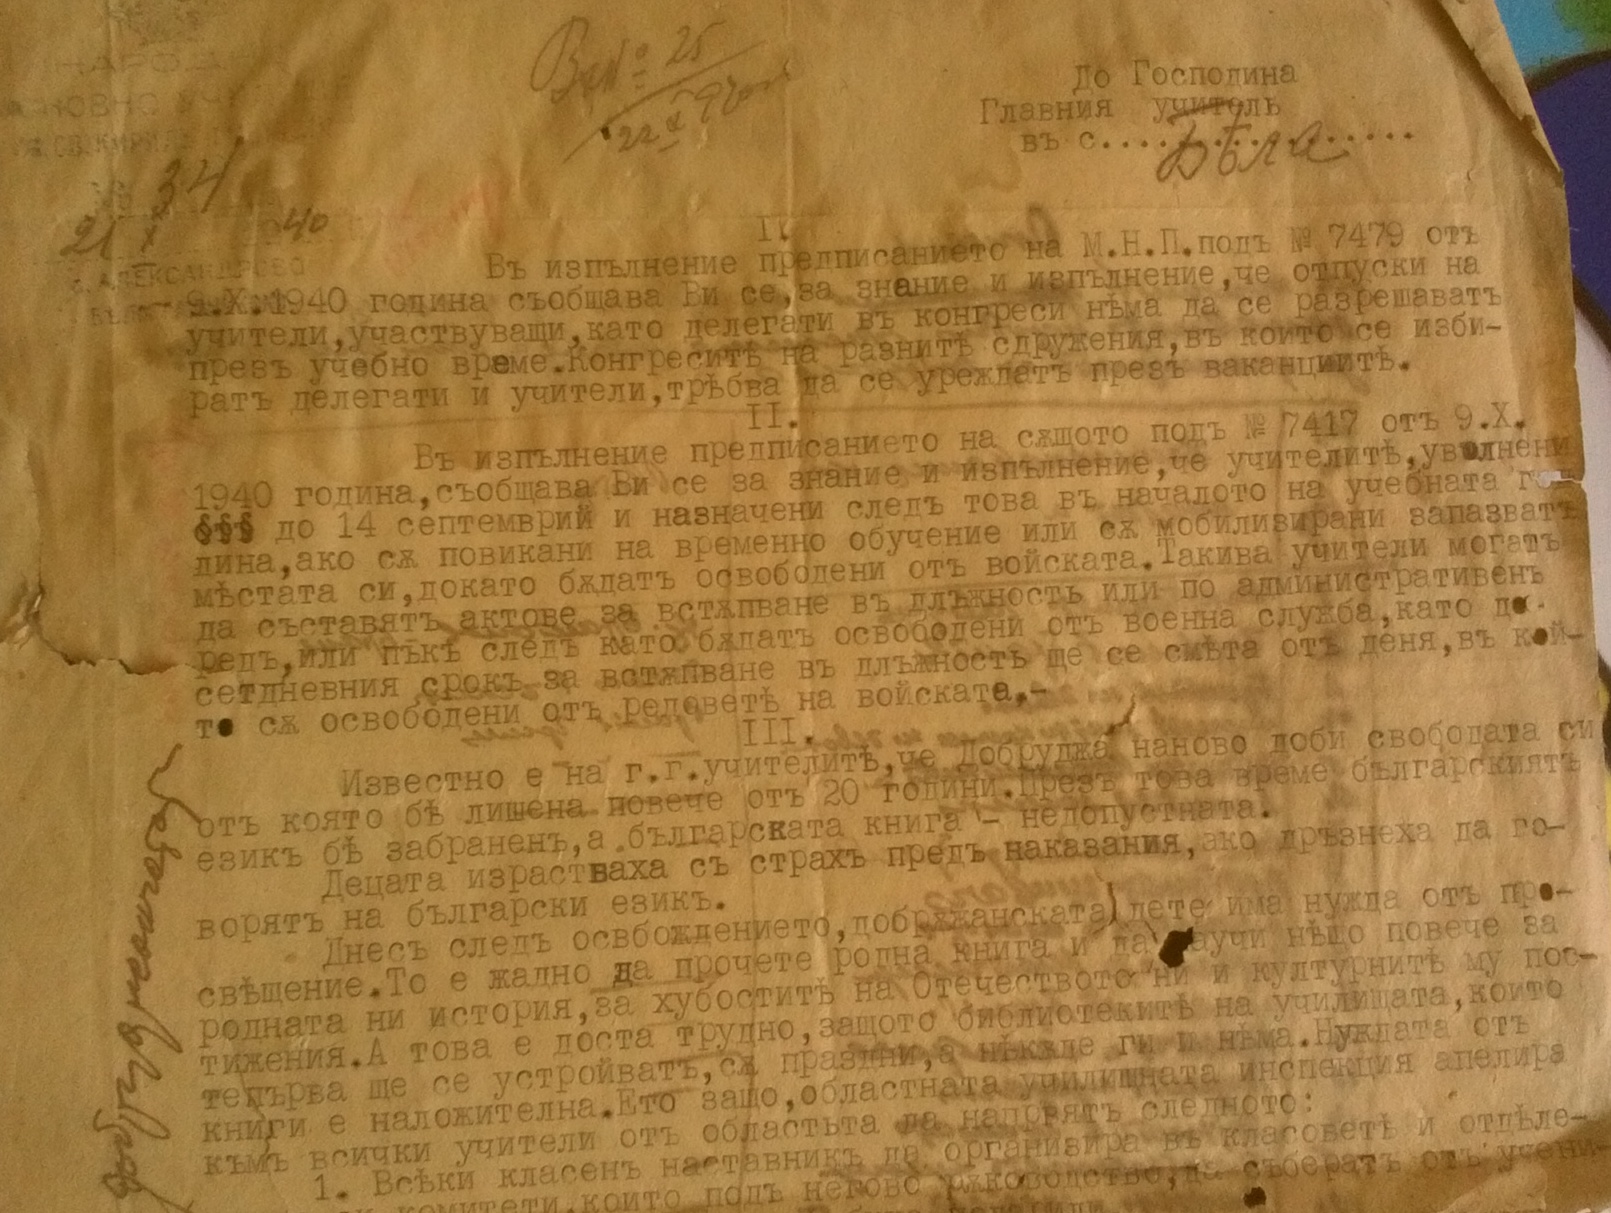 НАРОД
№ 34
21 X 40
с. АЛЕКСАНДРОВО
Вх. № 25
22 X 940
До Господина
Главния учитель
въ с. Бѣла
I.
Въ изпълнение предписанието на М.Н.П.подъ № 7479 отъ
9.X.1940 година съобщава Ви се,за знание и изпълнение,че отпуски на
учители,участвуващи,като делегати въ конгреси нѣма да се разрешаватъ
презъ учебно време.Конгреситѣ на разнитѣ сдружения,въ които се изби-
ратъ делегати и учители,трѣбва да се уреждатъ презъ ваканциитѣ.
II.
Въ изпълнение предписанието на сѫщото подъ № 7417 отъ 9.X.
1940 година,съобщава Ви се за знание и изпълнение,че учителитѣ,уволнени
§§§ до 14 септемврий и назначени следъ това въ началото на учебната го
дина,ако сѫ повикани на временно обучение или сѫ мобилизирани запазватъ
мѣстата си,докато бѫдатъ освободени отъ войската.Такива учители могатъ
да съставятъ актове за встѫпване въ длъжность или по административенъ
редъ,или пъкъ следъ като бѫдатъ освободени отъ военна служба,като де-
сетдневния срокъ за встѫпване въ длъжность ще се смѣта отъ деня,въ кой-
то сѫ освободени отъ редоветѣ на войската.-
III.
Известно е на г.г.учителитѣ,че Добруджа наново доби свободата си
отъ която бѣ лишена повече отъ 20 години.Презъ това време българскиятъ
езикъ бѣ забраненъ,а българската книга - недопустната.
Децата израстваха съ страхъ предъ наказания,ако дръзнеха да го-
ворятъ на български езикъ.
Днесъ следъ освбождението,добрѫжанската дете има нужда отъ про-
свѣщение.То е жадно да прочете родна книга и да научи нѣщо повече за
родната ни история,за хубоститѣ на Отечеството ни и културнитѣ му пос-
тижения.А това е доста трудно,защото библиотекитѣ на училищата,които
тепърва ще се устройватъ,сѫ праздни,а нѣкѫде ги и нѣма.Нуждата отъ
книги е наложителна.Ето защо,областната училищната инспекция апелира
къмъ всички учители отъ областьта да напрвятъ следното:
1. Всѣки класенъ наставникъ да организира въ класоветѣ и отдѣле-
комитети,които подъ негово рѫководство,да събератъ отъ учени-